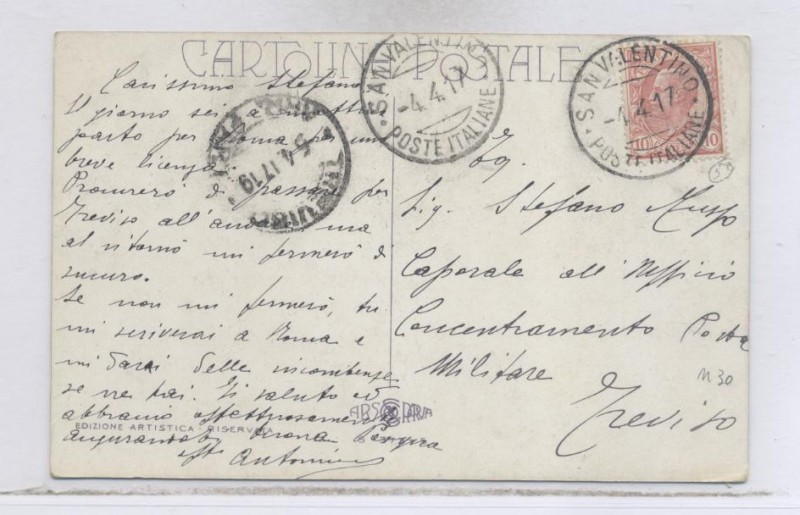 CARTOLINA POSTALE
SAN VALENTINO
-4.4.17
POSTE ITALIANE
SAN VALENTINO
-4.4.17
POSTE ITALIANE
10 10
5.4.17 19
Carissimo Stefano
Il giorno sei
parto per Roma per una
breve licenza.
Procurerò di passare per
Treviso all'andata ma
al ritorno mi fermerò di
sicuro.
Se non mi fermerò, tu
mi scriverai a Roma e
mi darai delle incombenze
se ne hai. Ti saluto ed
abbraccio affettuosamente
augurandoti buona Pasqua
aff Antonino
EDIZIONE ARTISTICA RISERVATA
Eg.
Sig. Stefano
Caporale all'Ufficio
Concentramento Posta
Militare
Treviso
N 30